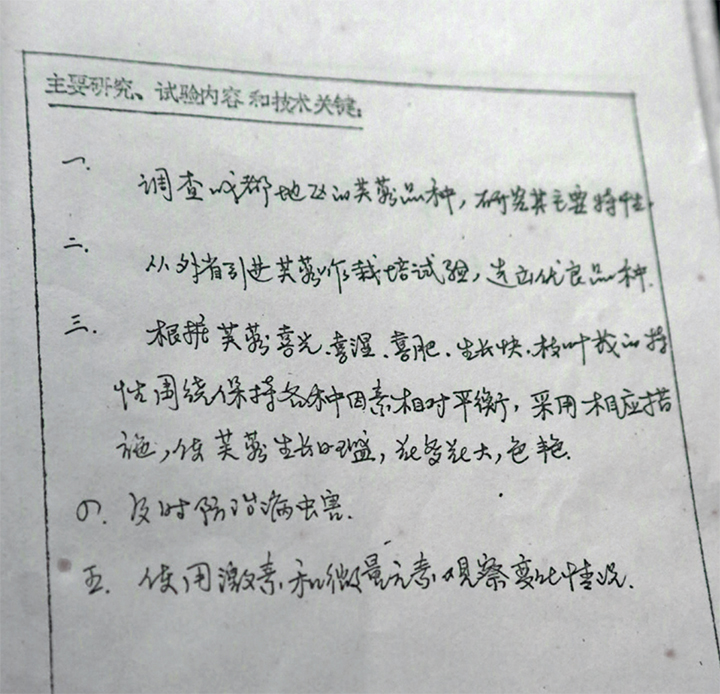 主要研究、试验内容和技术关键:
一. 调查成都地区的芙蓉品种，研究其主要特性.
二. 从外省引进芙蓉作栽培试验，选出优良品种.
三. 根据芙蓉喜光、喜湿、喜肥、生长快、枝叶茂的特
性围绕保持各种因素相对平衡，采用相应措
施，使芙蓉生长旺盛，花多花大，色艳.
四. 及时防治病虫害.
五. 使用激素和微量元素，观察变化情况.